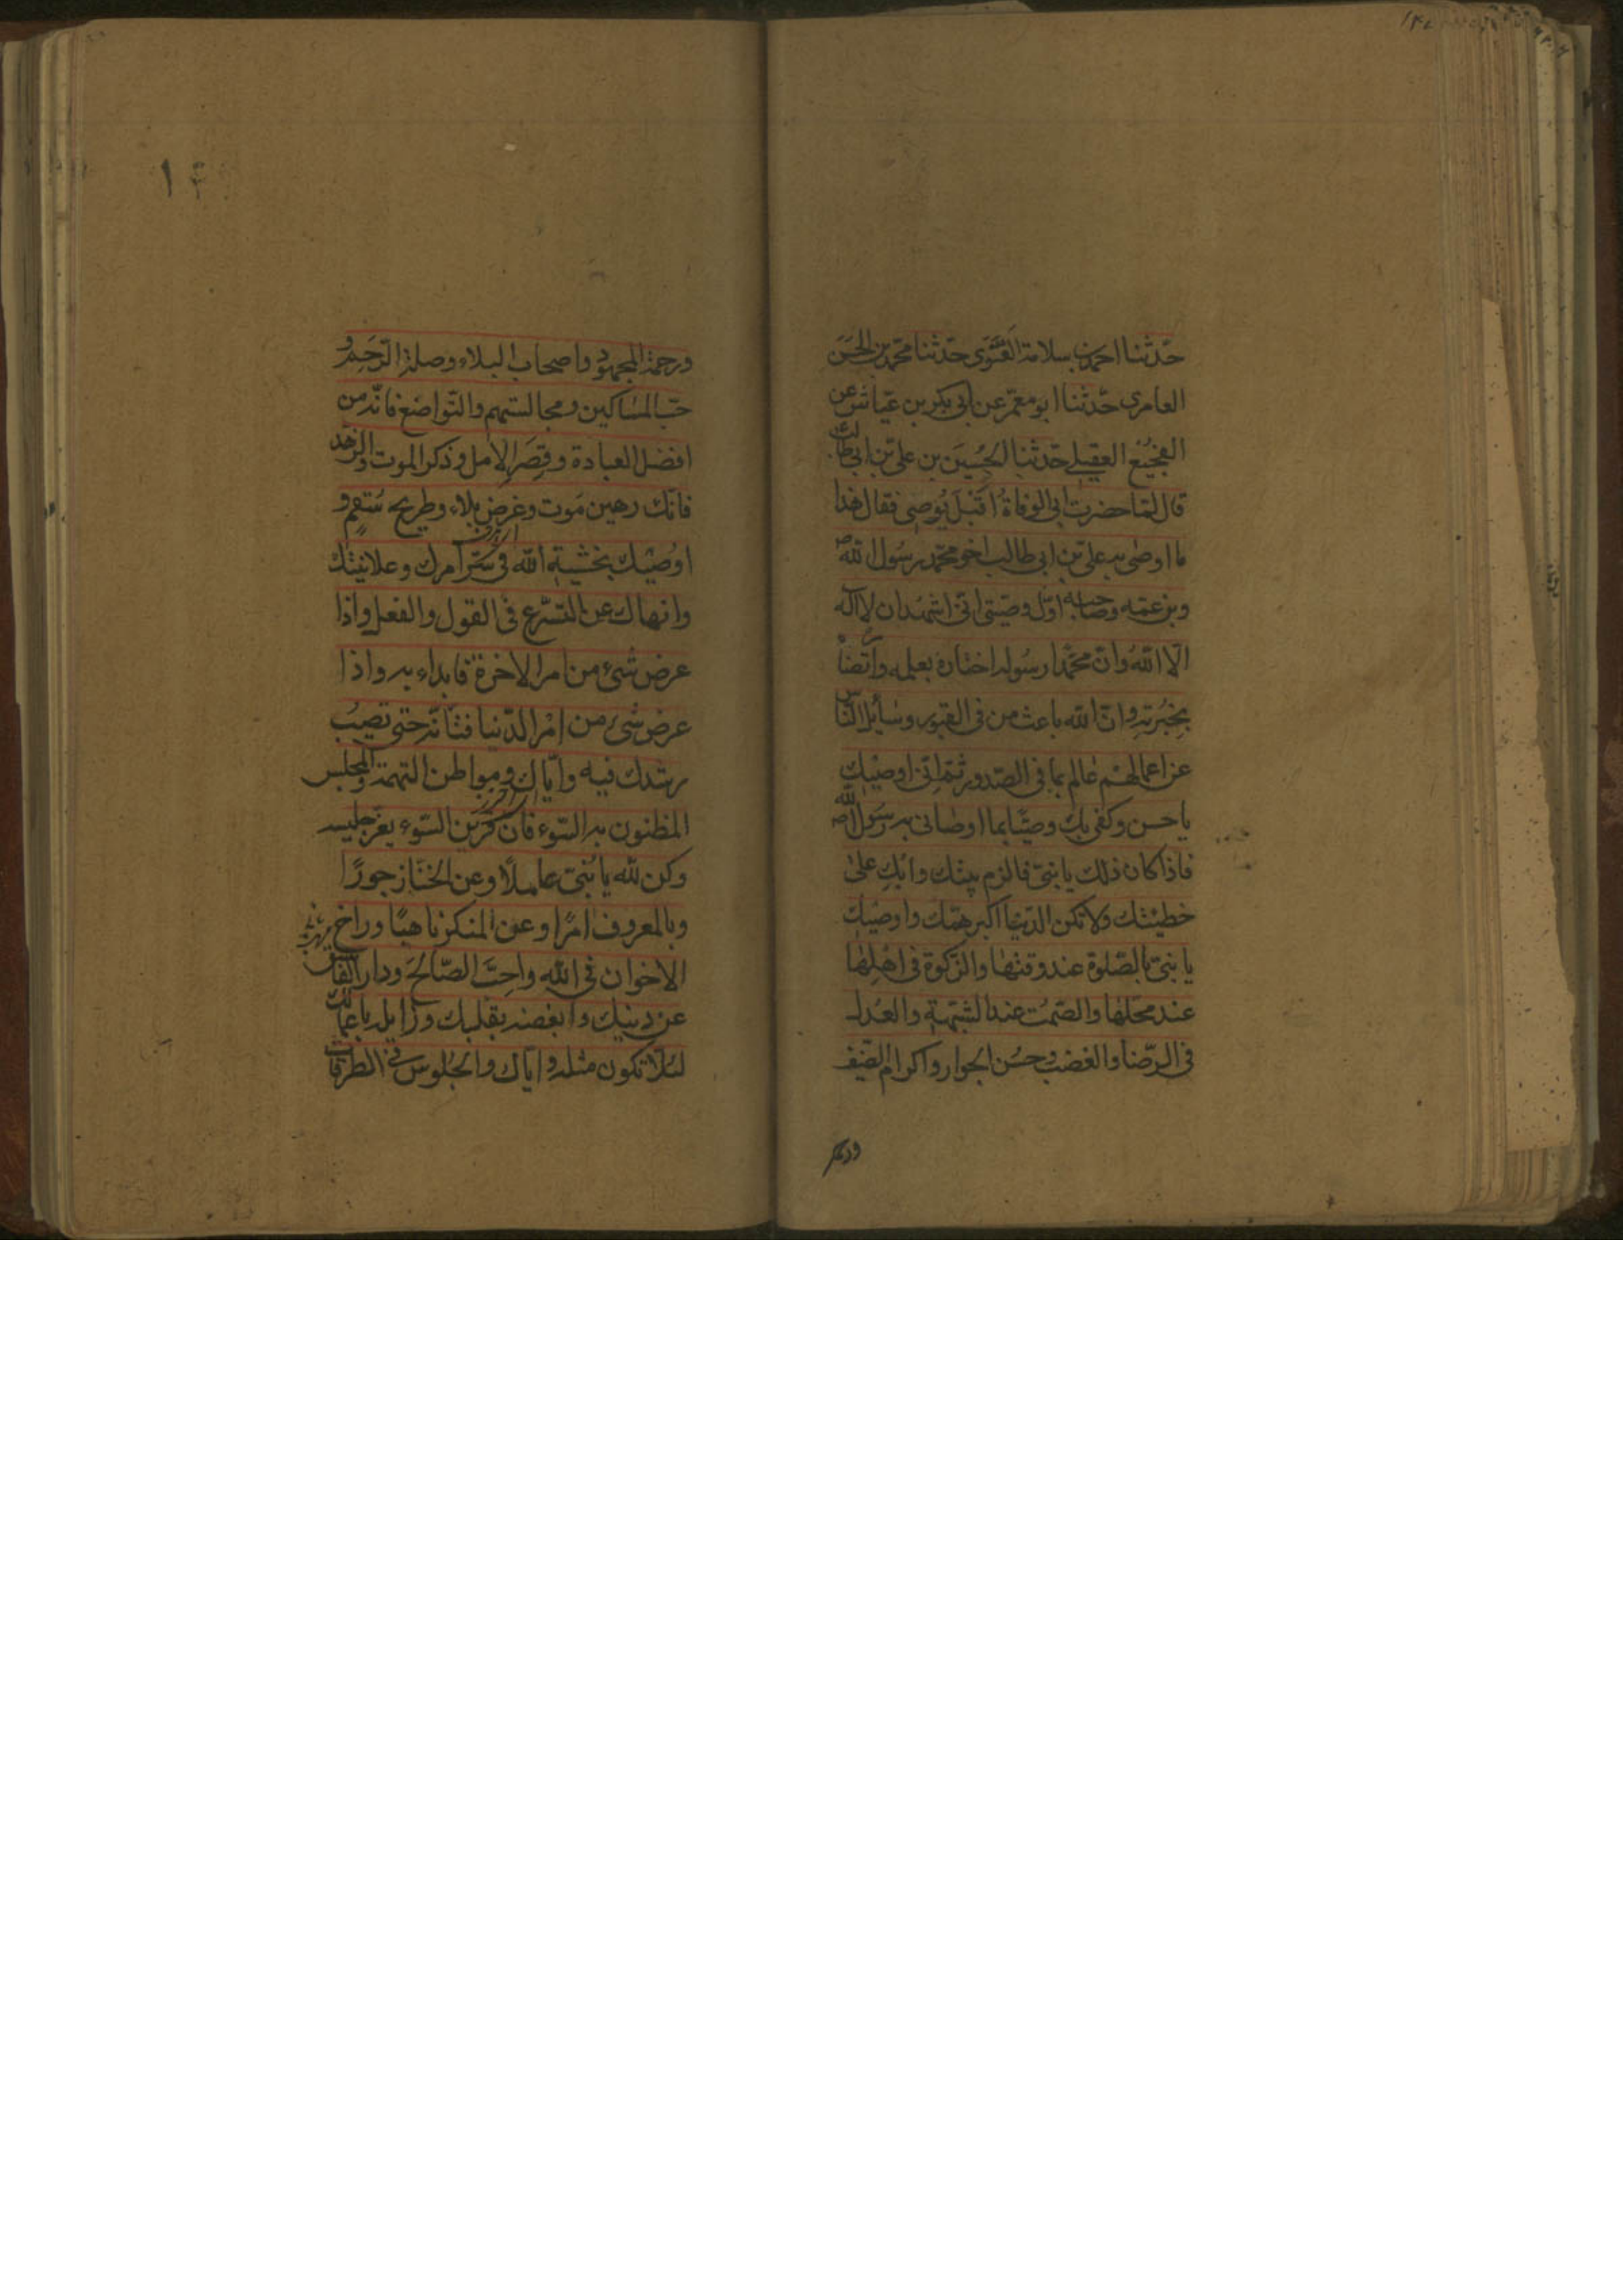 حدّثنا احمد بن سلامة الغَنَوى حدّثنا محمّد بن الحَسَن
العامرى حدّثنا ابو معمّر عن ابى بكر بن عيّاش عن
الفجيع العقيلے حدّثنا الحُسَين بن على بن ابى طالب
قال لمّا حضرت ابى الوفاةُ اَقبَلَ يُوصى فقال هذا
ما اوصٰى به على بن ابى طالب اخو محمّد رسُول الله ص
وبن عمّه وصاحبه اوّل وصيّتى انّى اشهَدُ ان لا اله
الّا اللهُ وانّ محمّدا رسُوله اختاره بعلمه وارتضاه
بِخِيَرته وانّ الله باعث من فى القبور وسَائِل النّاس
عن اعمالهم عٰالم بما فى الصّدور ثمّ انّى اوصيك
يا حسن وكفى بك وصيّا بما اوصانى به رسَول الله ص
فاذا كان ذلك يا بنىّ فالزم بيتك وابكِ على
خطيئتك ولا تكن الدّنيا اكبر همّك واوصيك
يا بنىّ بالصّلوة عند وقتها والزّكوة فى اهلِها
عند محلّها والصّمت عند الشّبهة والعدل
فى الرّضا والغضب وحسُن الجوار واكرام الضّيف
ورحمة
۱۴
ورحمة المجهود واصحاب البلاء وصلة الرَّحِم و
حبّ المساكين ومجالستهم والتّواضع فانّه من
افضل العبادة وقِصَر الامل وذكر الموت والزهد
فانّك رهين مَوت وغرض بلاء وطريح سُقم و
اوُصيك بخشية الله فى سرّ امرك وعلانيتك
وانهاك عن التّسرّع فى القول والفعل واذا
عرض شىء من امر الاخرة فابداء به واذا
عرض شىء من امْر الدّنيا فتانّه حتى تصيبُ
رشدك فيه وايّاك ومواطن التهمة والمجلس
المظنون به السّوء فان قرين السّوء يغرّ جليسه
وكن لله يا بُنىّ عاملًا وعن الخنا زجورًا
وبالمعروف امرًا وعن المنكر ناهيًا وواخ
الاخوان فى الله واحِبَّ الصّالحَ ودار الفاسق
عن دينك وابغضه بقلبك وزايله باعمالك
لئلّا تكون مثله وايّاك والجُلوس فى الطرقات